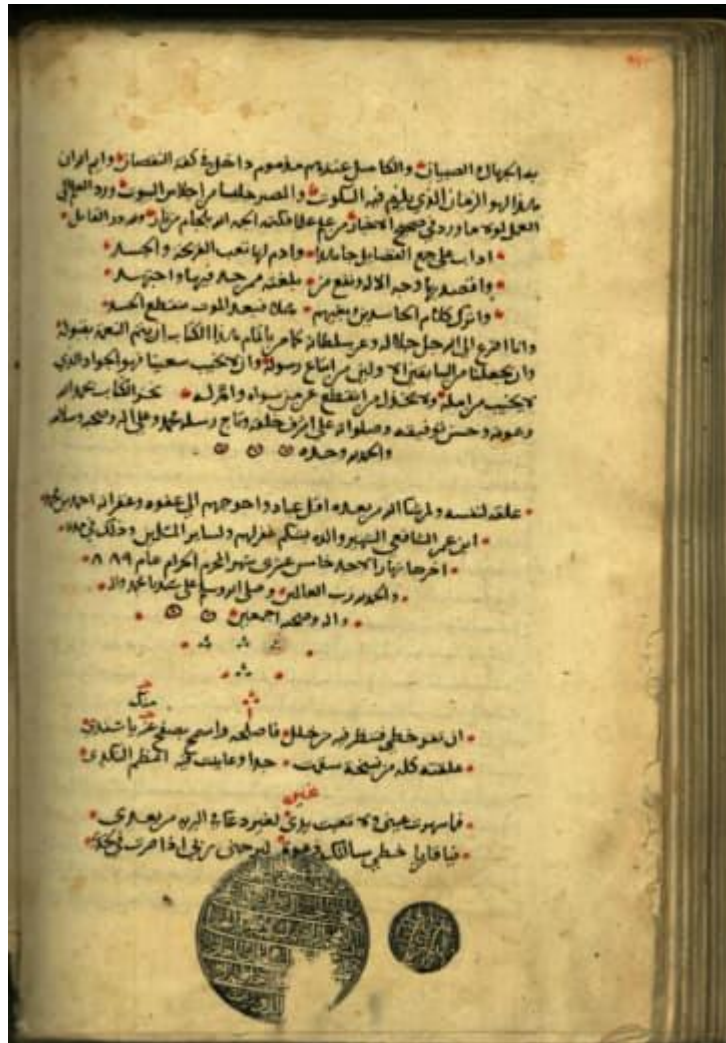 به الجهال والصبيان والكامل عندهم مذموم داخل في كفة النقصان وايم الله ان
هذا لهو الزمان الذي يلزم فيه السكوت والمصير حلسا من احلاس البيوت ورد العلم الى
العمل لولا ما ورد في صحيح الاخبار من علم علما فكتمه الجمه الله بلجام من نار ولله در القائل
اداب على جمع الفضايل جاهدا وادم لها تعب القريحة والجسد
واقصد بها وجه الاله ونفع من بلغته ممن جد فيها واجتهد
واترك كلام الحاسدين وبغيهم هملا فبعد الموت ينقطع الحسد
وانا افزع الى الله جل جلاله وعز سلطانه كما من باتمام هذا الكتاب ان يتم النعمة بقبوله
وان يجعلنا من السابقين الاولين من اتباع رسوله وان لا يخيب سعينا فهو الجواد الذي
لا يخيب من امله ولا يخذل من انقطع عمن سواه وام له نجز الكتاب بحمد الله
وعونه وحسن توفيقه وصلواته على اشرف خلقه وتاج رسله محمد وعلى اله وصحبه وسلامه
والحمد لله وحده
علقه لنفسه ولمن شا الله من بعده اقل عباده واحوجهم الى عفوه وغفرانه احمد بن محمد
ابن عمر الشافعي الشهير والده غفر لهم ولساير المسلمين وذلك في
اخرها نهار الاحد خامس عشري شهر المحرم الحرام عام ٨٨٩
والحمد لله رب العالمين وصلى الله وسلم على سيدنا محمد واله
واله وصحبه اجمعين
خطي فتنظر فيه من خلل فاصلحه واسمح بصفح
علقته كله من نسخة جدا وعاينت فيه
فما سهرت عيني ولا تعبت يدي لغير دعاء من بعدي
فيا قاريا خطي سالتك دعوة ليرحمني ربي اذا صرت في لحدي